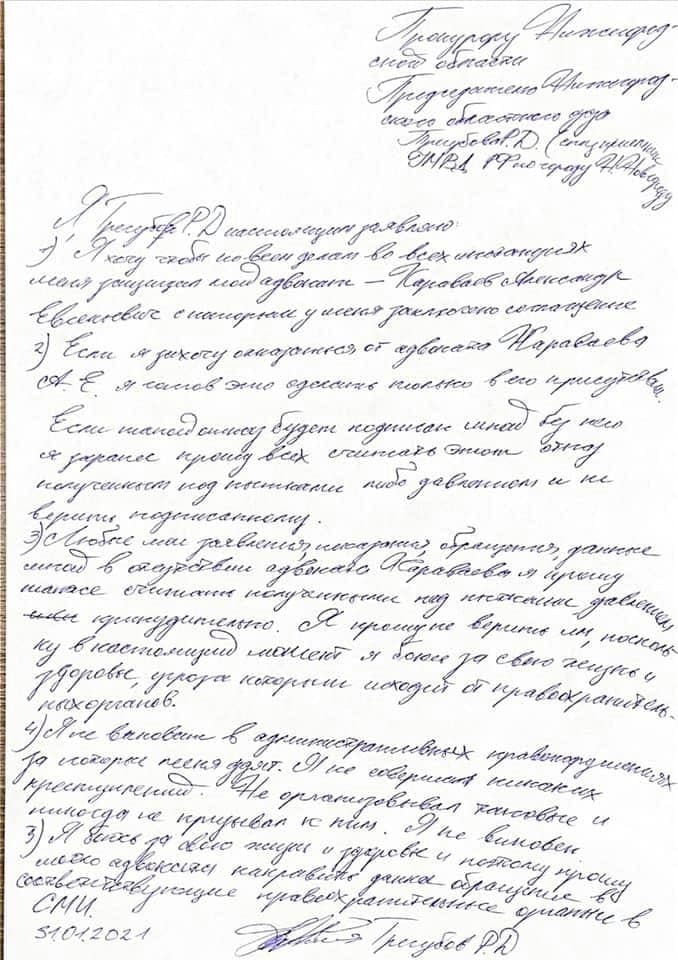 Прокурору Нижегород-
ской области
Председателю Нижегород-
ского областного суда
Трегубова Р.Д. (спецприемник
УМВД РФ по городу Н.Новгороду
Я, Трегубов Р.Д настоящим заявляю:
1) Я хочу чтобы по всем делам во всех инстанциях
меня защищал мой адвокат – Караваев Александр
Евгеньевич с которым у меня заключено соглашение
2) Если я захочу отказаться от адвоката Караваева
А.Е. я готов это сделать только в его присутствии.
Если такой отказ будет подписан мной без него
я заранее прошу всех считать этот отказ
полученным под пытками либо давлением и не
верить подписанному.
3) Любые мои заявления, показания, обращения, данные
мной в отсутствии адвоката Караваева я прошу
также считать полученными под пытками, давлением,
принудительно. Я прошу не верить им, посколь-
ку в настоящий момент я боюсь за свою жизнь и
здоровье, угроза которым исходит от правоохранитель-
ных органов.
4) Я не виноват в административных правонарушениях
за которые меня судят. Я не совершал никаких
преступлений. Не организовывал таковые и
никогда не призывал к ним. Я не виновен
5) Я боюсь за свою жизнь и здоровье и потому прошу
моего адвоката направить данное обращение в
соответствующие правоохранительные органы и в
СМИ.
31.01.2021 Трегубов Р.Д